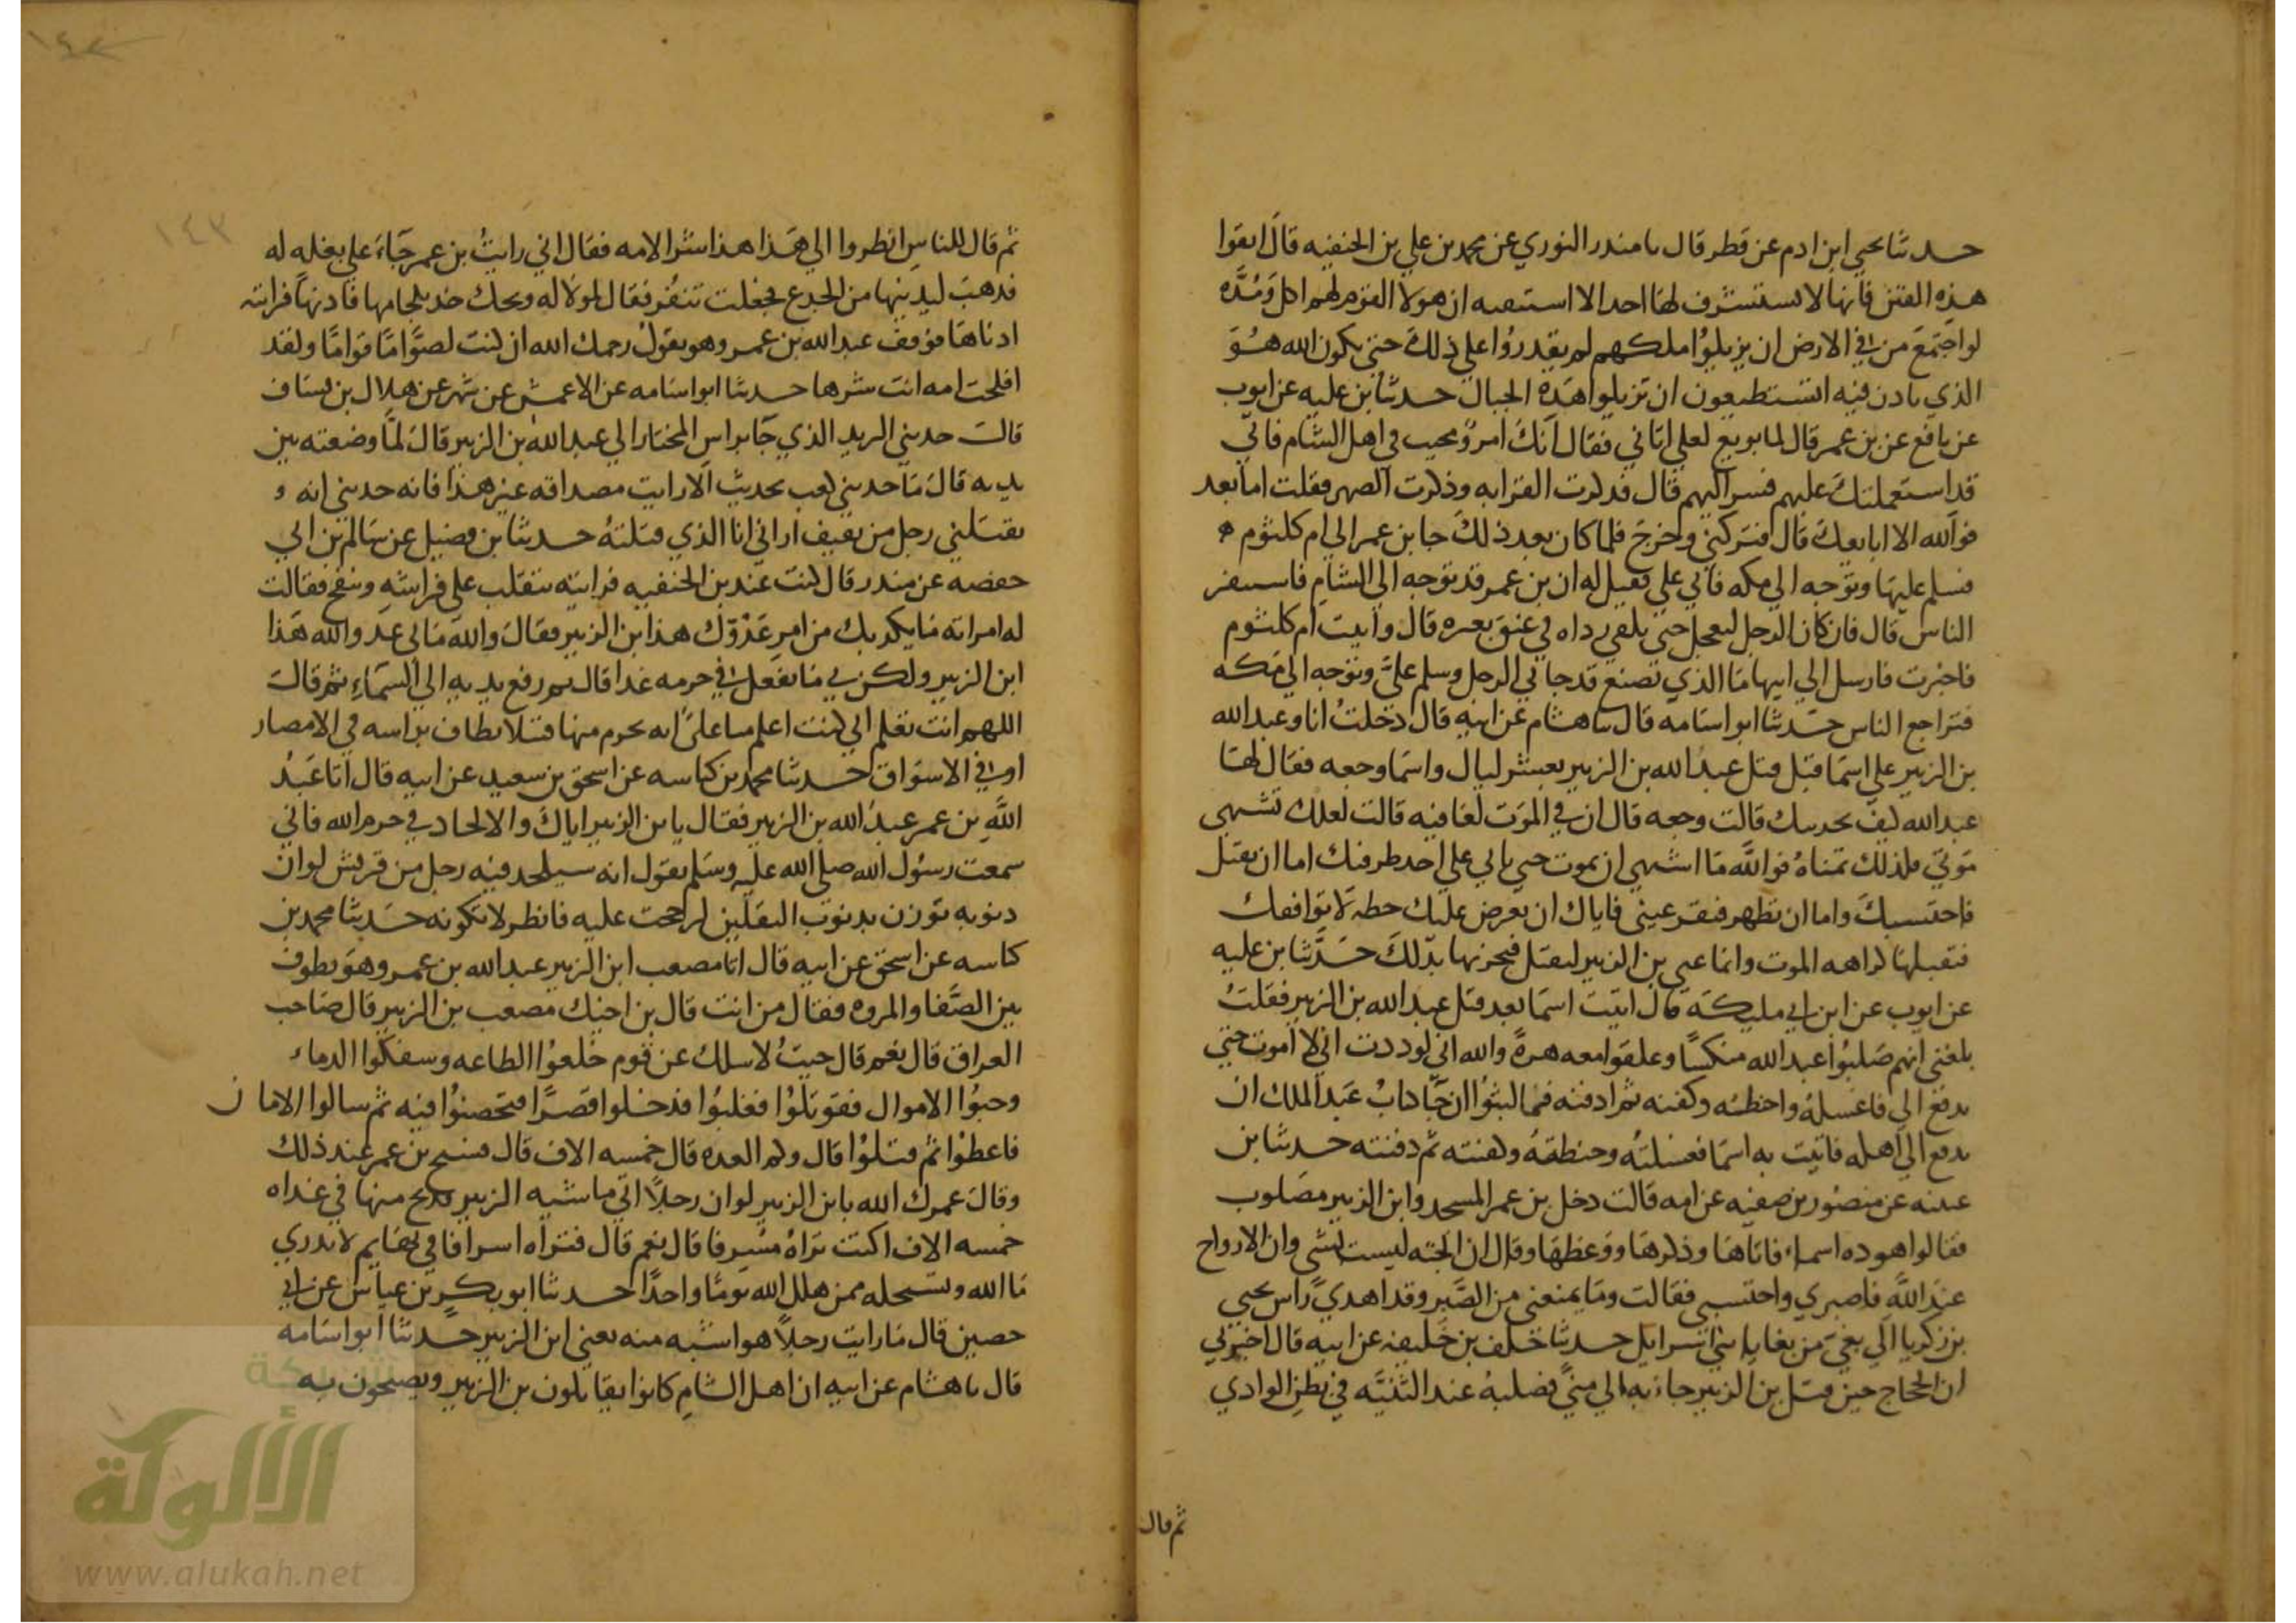 حدثنا يحيى ابن ادم عن فطر قال نا منذر الثوري عن محمد بن علي بن الحنفيه قال اتقوا
هذه الفتن فانها لا يستشرف لها احد الا استبقته ان هولا القوم لهم اجل ومدة
لو اجتمع من في الارض ان يزيلوا ملكهم لم يقدروا على ذلك حتى يكون الله هو
الذي ياذن فيه اتستطيعون ان تزيلوا هذه الجبال حدثنا بن عليه عن ايوب
عن نافع عن بن عمر قال لما بويع لعلي اتاني فقال انك امرؤ محبب في اهل الشام فاني
قد استعملتك عليهم فسر اليهم قال فذكرت القرابه وذكرت الصهر فقلت اما بعد
فوالله لا ابايعك قال فتركني وخرج فلما كان بعد ذلك جا بن عمر الى ام كلثوم
فسلم عليها وتوجه الى مكه فاتي علي فقيل له ان بن عمر قد توجه الى الشام فاستنفر
الناس قال فان كان الرجل ليعجل حتى يلقي رداه في عنق بعيره قال واتيت ام كلثوم
فاخبرت فارسل الى ابيها ما الذي تصنع قد جاني الرجل وسلم علي وتوجه الى مكه
فتراجع الناس حدثنا ابو اسامه قال نا هشام عن ابيه قال دخلت انا وعبد الله
بن الزبير على اسما قبل قتل عبد الله بن الزبير بعشر ليال واسما وجعه فقال لها
عبد الله كيف تجدينك قالت وجعه قال ان في الموت لعافيه قالت لعلك تشتهي
موتي فلذلك تمناه فوالله ما اشتهي ان تموت حتى ياتي على احد طرفيك اما ان تقتل
فاحتسبك واما ان تظهر فتقر عيني فاياك ان تعرض عليك خطه لا توافقك
فتقبلها كراهه الموت وانما عني بن الزبير ليقتل فيحزنها بذلك حدثنا بن عليه
عن ايوب عن ابن ابي مليكة قال اتيت اسما بعد قتل عبد الله بن الزبير فقلت
بلغني انهم صلبوا عبد الله منكسا وعلقوا معه هرة والله اني لوددت اني لا اموت حتى
يدفع الي فاغسله واحنطه وكفنه ثم ادفنه فما لبثوا ان جا كتاب عبد الملك ان
يدفع الى اهله فاتيت به اسما فغسلته وحنطته وكفنته ثم دفنته حدثنا بن
عيينه عن منصور بن صفيه عن امه قالت دخل بن عمر المسجد وابن الزبير مصلوب
فقالوا هوذه اسماء فاتاها وذكرها ووعظها وقال ان الجثه ليست بشي وان الارواح
عند الله فاصبري واحتسبي فقالت وما يمنعني من الصبر وقد اهدي راس يحيى
بن زكريا الى بغي من بغايا بني اسرايل حدثنا خلف بن خليفه عن ابيه قال اخبرني
ان الحجاج حين قتل بن الزبير جاء به الى منى فصلبه عند الثنيه في بطن الوادي
ثم قال
ثم قال للناس انظروا الى هذا هذا شر الامه فقال اني رايت بن عمر جاء على بغله له
فذهب ليدنيها من الجذع فجعلت تنفر فقال لمولا له ويحك خذ بلجامها فادنها فرايته
ادناها فوقف عبد الله بن عمر وهو يقول رحمك الله ان كنت لصواما قواما ولقد
افلحت امه انت شرها حدثنا ابو اسامه عن الاعمش عن شمر عن هلال بن يساف
قالت حدثني البريد الذي جا براس المختار الى عبد الله بن الزبير قال لما وضعته بين
يديه قال ما حدثني كعب بحديث الا رايت مصداقه غير هذا فانه حدثني انه
يقتلني رجل من ثقيف اراني انا الذي قتلته حدثنا بن فضيل عن سالم بن ابي
حفصه عن منذر قال كنت عند بن الحنفيه فرايته يتقلب على فراشه وينفخ فقالت
له امراته ما يكربك من امر عدوك هذا ابن الزبير فقال والله ما لي عدو الله هذا
ابن الزبير ولكن بي ما يفعل في حرمه غدا قال ثم رفع يديه الى السماء ثم قال
اللهم انت تعلم اني كنت اعلم مما علمتني انه يحرم منها قتلا يطاف براسه في الامصار
او في الاسواق حدثنا محمد بن كناسه عن اسحق بن سعيد عن ابيه قال اتا عبد
الله بن عمر عبد الله بن الزبير فقال يا بن الزبير اياك والالحاد في حرم الله فاني
سمعت رسول الله صلى الله عليه وسلم يقول انه سيلحد فيه رجل من قريش لو ان
ذنوبه توزن بذنوب الثقلين لرجحت عليه فانظر لا تكونه حدثنا محمد بن
كناسه عن اسحق عن ابيه قال اتا مصعب ابن الزبير عبد الله بن عمر وهو يطوف
بين الصفا والمروه فقال من انت قال بن اخيك مصعب بن الزبير قال صاحب
العراق قال نعم قال جيت لاسلك عن قوم خلعوا الطاعه وسفكوا الدماء
وجبوا الاموال فقوتلوا فغلبوا فدخلوا قصرا فتحصنوا فيه ثم سالوا الامان
فاعطوا ثم قتلوا قال وكم العده قال خمسه الاف قال فسبح بن عمر عند ذلك
وقال عمرك الله يا بن الزبير لو ان رجلا اتى ماشيه الزبير فذبح منها في غداه
خمسه الاف اكنت تراه مسرفا قال نعم قال فتراه اسرافا في بهايم لا تدري
ما الله وتستحله ممن هلل الله يوما واحدا حدثنا ابو بكر بن عياش عن ابي
حصين قال ما رايت رجلا هو اشبه منه يعني ابن الزبير حدثنا ابو اسامه
قال نا هشام عن ابيه ان اهل الشام كانوا يقاتلون بن الزبير ويصيحون به
١٤٣
شبكة
الألوكة
www.alukah.net